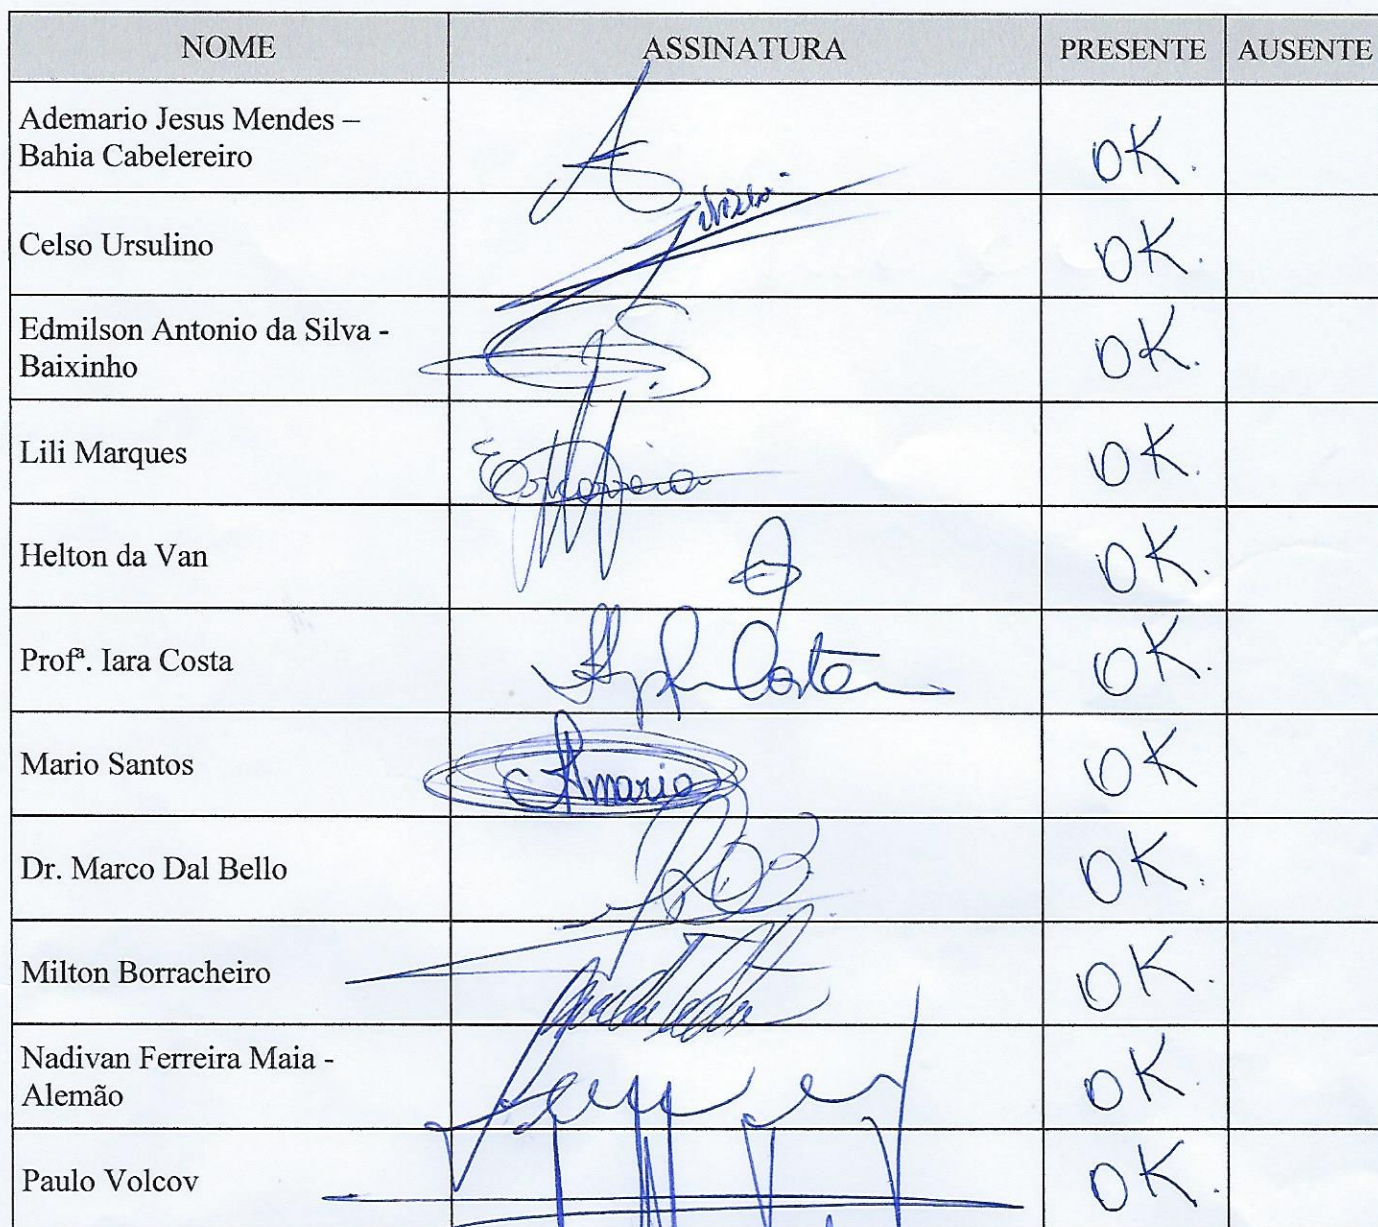 NOME ASSINATURA PRESENTE AUSENTE
Ademario Jesus Mendes –
Bahia Cabelereiro
OK.
Celso Ursulino
OK.
Edmilson Antonio da Silva -
Baixinho
OK.
Lili Marques
OK.
Helton da Van
OK.
Profª. Iara Costa
Costa
OK.
Mario Santos
mario
OK
Dr. Marco Dal Bello
OK.
Milton Borracheiro
OK.
Nadivan Ferreira Maia -
Alemão
OK.
Paulo Volcov
OK.